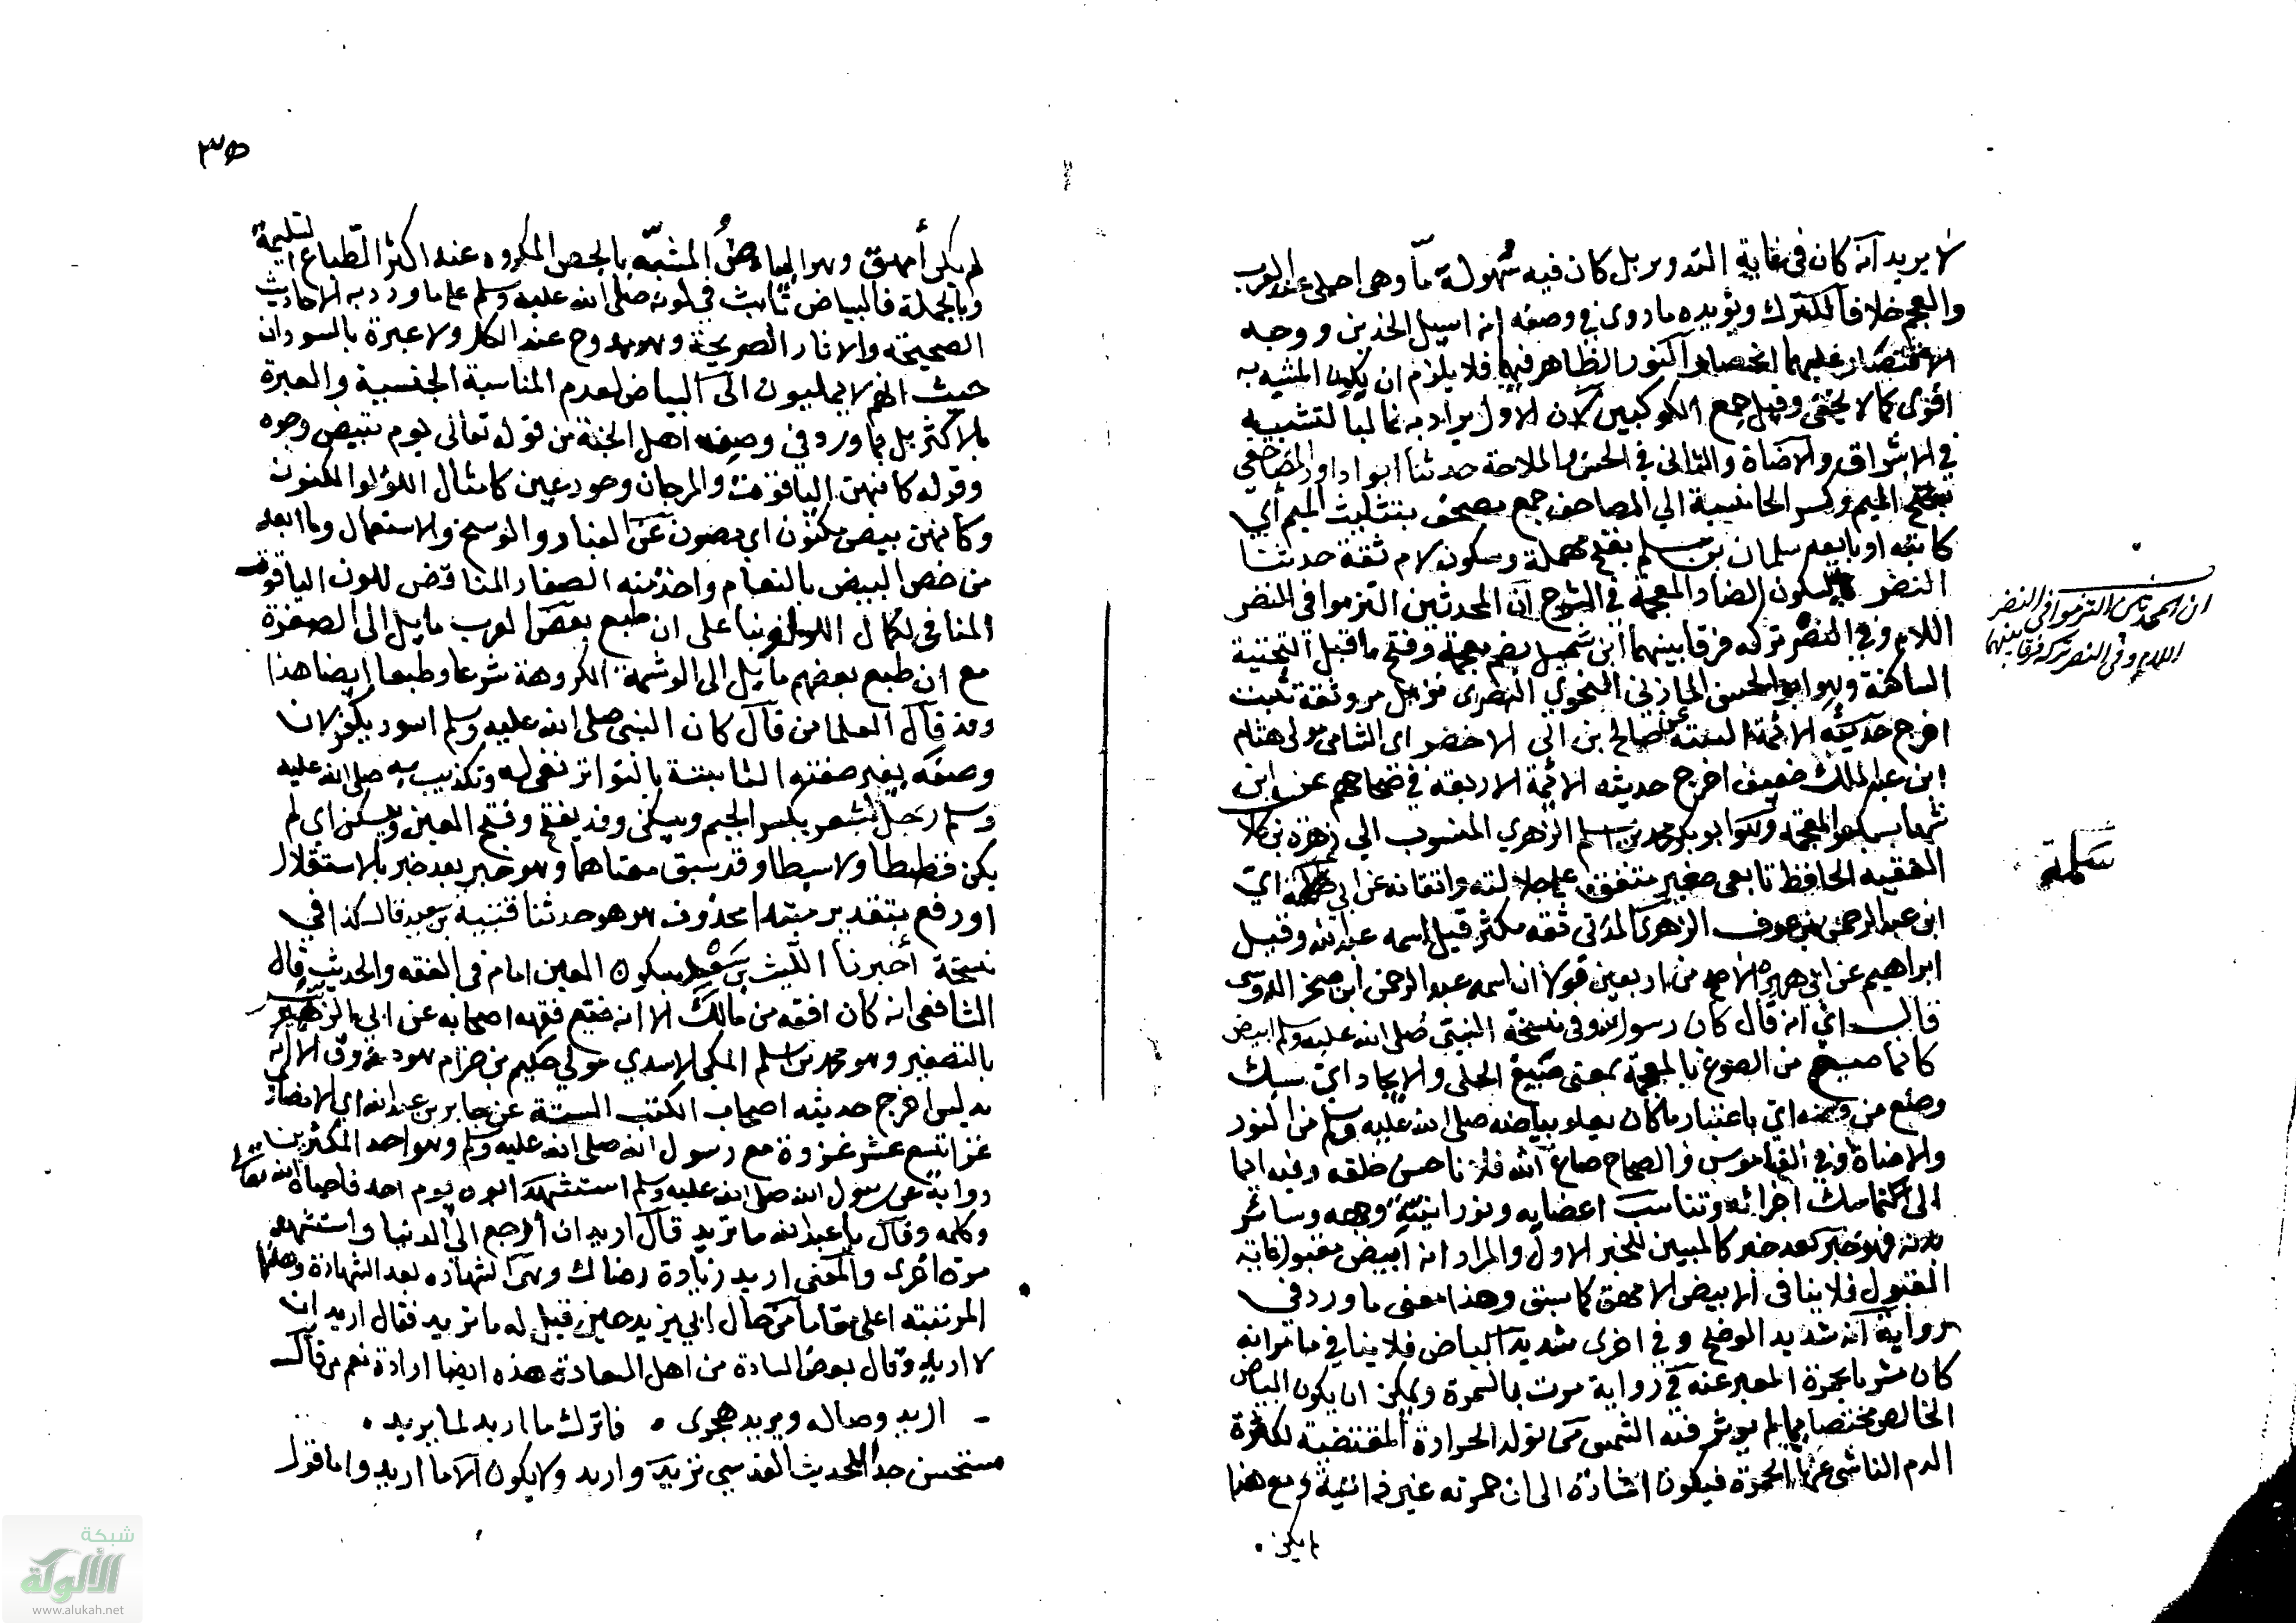 لا يريد أنه كان في غاية التدوير بل كان فيه سهولة ما وهي احلى عند العرب
والعجم خلافا للترك ويؤيده ما روى في وصفه انه اسيل الخدين ووجه
الاقتصار عليهما انحصار النور الظاهر فيهما فلا يلزم ان يكون المشبه به
أقوى كما لا يخفى وقيل جمع الكوكبين لان الاول يراد به غالبا التشبيه
في الاشراق والاضاة والثاني في الحسن والملاحة حدثنا ابو داود المصاحفي
بفتح الميم وكسر الحا نسبة الي المصاحف جمع مصحف بتثليث الميم أي
كاتبه او بايعه سلمان بن سلم بفتح مهملة وسكون لام ثقة حدثنا
النضر بسكون الضاد المعجمة في الشرح ان المحدثين التزموا في النضر
اللام وفي النصر تركه فرقا بينهما ابن شميل بضم معجمة وفتح ما قبل التحتية
الساكنة وهو ابو الحسن المازني النحوي البصرى نزيل مرو ثقة ثبت
اخرج حديثه الائمة الستة عن صالح بن ابي الاخضر اى الشامى مولى هشام
ابن عبد الملك ضعيف اخرج حديثه الائمة الاربعة في صحاحهم عن ابن
شهاب بكسر المعجمة وهو ابو بكر محمد بن مسلم الزهري المنسوب الي زهرة بن كلاب
الفقيه الحافظ تابعى صغير متفق على جلالته واتقانه عن ابي سلمة اي
ابن عبد الرحمن بن عوف الزهرى المدني ثقة مكثر قيل اسمه عبد الله وقيل
ابراهيم عن ابي هريرة الاصح من اربعين قولا ان اسمه عبد الرحمن ابن صخر الدوسى
قال اي انه قال كان رسول الله وفي نسخة النبي صلى الله عليه وسلم ابيض
كانما صيغ من الصوغ بالمعجمة بمعنى صنع الحلى والايجاد اي سبك
وصنع من فضة اي باعتبار ما كان يعلو بياضه صلى الله عليه وسلم من النور
والاضاة وفي القاموس والصحاح صاغ الله فلانا حسن خلقه وفيه ايما
الى تماسك اجزائه وتناسب اعضايه ونورانية وجهه وسائر
بدنه فهو خبر بعد خبر كالمبين للخبر الاول والمراد انه ابيض مقبول غاية
القبول فلا ينافي الابيض الامهق كما سبق وهذا معنى ما ورد في
رواية انه شديد الوضح وفي اخرى شديد البياض فلا ينافي ما مر انه
كان مشربا بحمرة المعبر عنه في رواية مرت بالسمرة ويمكن ان يكون البياض
الخالص مختصا بما لم يوثر فيه الشمس من تولد الحرارة المقتضية لكثرة
الدم الناشى عنها الحمرة فيكون اشارة الى ان حمرته غير ذاتية ومع هذا
لم يكن
ان المحدثين التزموا في النضر
اللام وفي النصر تركه فرقا بينهما
سلمة
٣٥
لم يكن أمهق وهو البياض المشبه بالجص المكروه عند اكثر الطباع السليمة
وبالجملة فالبياض ثابت في لونه صلى الله عليه وسلم على ما ورد به الاحاديث
الصحيحة والاثار الصريحة وهو ممدوح عند الكل ولا عبرة بالسودان
حيث انهم لا يميلون الى البياض لعدم المناسبة الجنسية والعبرة
بالاكثر بل بما ورد في وصف اهل الجنة من قوله تعالى يوم تبيض وجوه
وقوله كانهن الياقوت والمرجان وحور عين كامثال اللؤلؤ المكنون
وكانهن بيض مكنون اي مصون عن الغبار والوسخ والاستعمال وما ابعد
من خص البيض بالنعام واخذ منه الصفار المناقض للون الياقوت
المنافي لكمال اللؤلؤ بنا على ان طبع بعض العرب مايل الى الصفرة
مع ان طبع بعضهم مايل الى الوشمة المكروهة شرعا وطبعا ايضا هذا
وقد قال العلما من قال كان النبي صلى الله عليه وسلم اسود يكفر لان
وصفه بغير صفته الثابتة بالتواتر نفي له وتكذيب به صلى الله عليه
وسلم رجل الشعر بكسر الجيم ويسكن وقد يفتح وفتح العين ويسكن اي لم
يكن قططا ولا سبطا وقد سبق معناهما وهو خبر بعد خبر بالاستقلال
او رفع بتقدير مبتدا محذوف هو هو حدثنا قتيبة بن سعيد قال كذا في
نسخة أخبرنا الليث بن سعد بسكون العين امام في الفقه والحديث قال
الشافعي انه كان افقه من مالك الا انه ضيع فقهه اصحابه عن ابي الزبير
بالتصغير وهو محمد بن مسلم المكي الاسدي مولي حكيم بن حزام صدوق الا انه
يدلس اخرج حديثه اصحاب الكتب الستة عن جابر بن عبد الله اي الانصارى
غزا تسع عشر غزوة مع رسول الله صلى الله عليه وسلم وهو احد المكثرين
رواية عن رسول الله صلى الله عليه وسلم استشهد ابوه يوم احد فاحياه الله تعالى
وكلمه وقال يا عبد الله ما تريد قال اريد ان أرجع الي الدنيا واستشهد
مرة أخرى والمعنى اريد زيادة رضاك وهى الشهادة بعد الشهادة وهذا
المرتبة اعلى مقاما من حال ابي يزيد حين قيل له ما تريد فقال اريد ان
لا اريد وقال بعض السادة من اهل السعادة هذه ايضا ارادة نعم من قال
اريد وصاله ويريد هجرى . فاترك ما اريد لما يريد .
مستحسن جدا للحديث القدسي تريد واريد ولا يكون الا ما اريد واما قول
شبكة
الألوكة
www.alukah.net